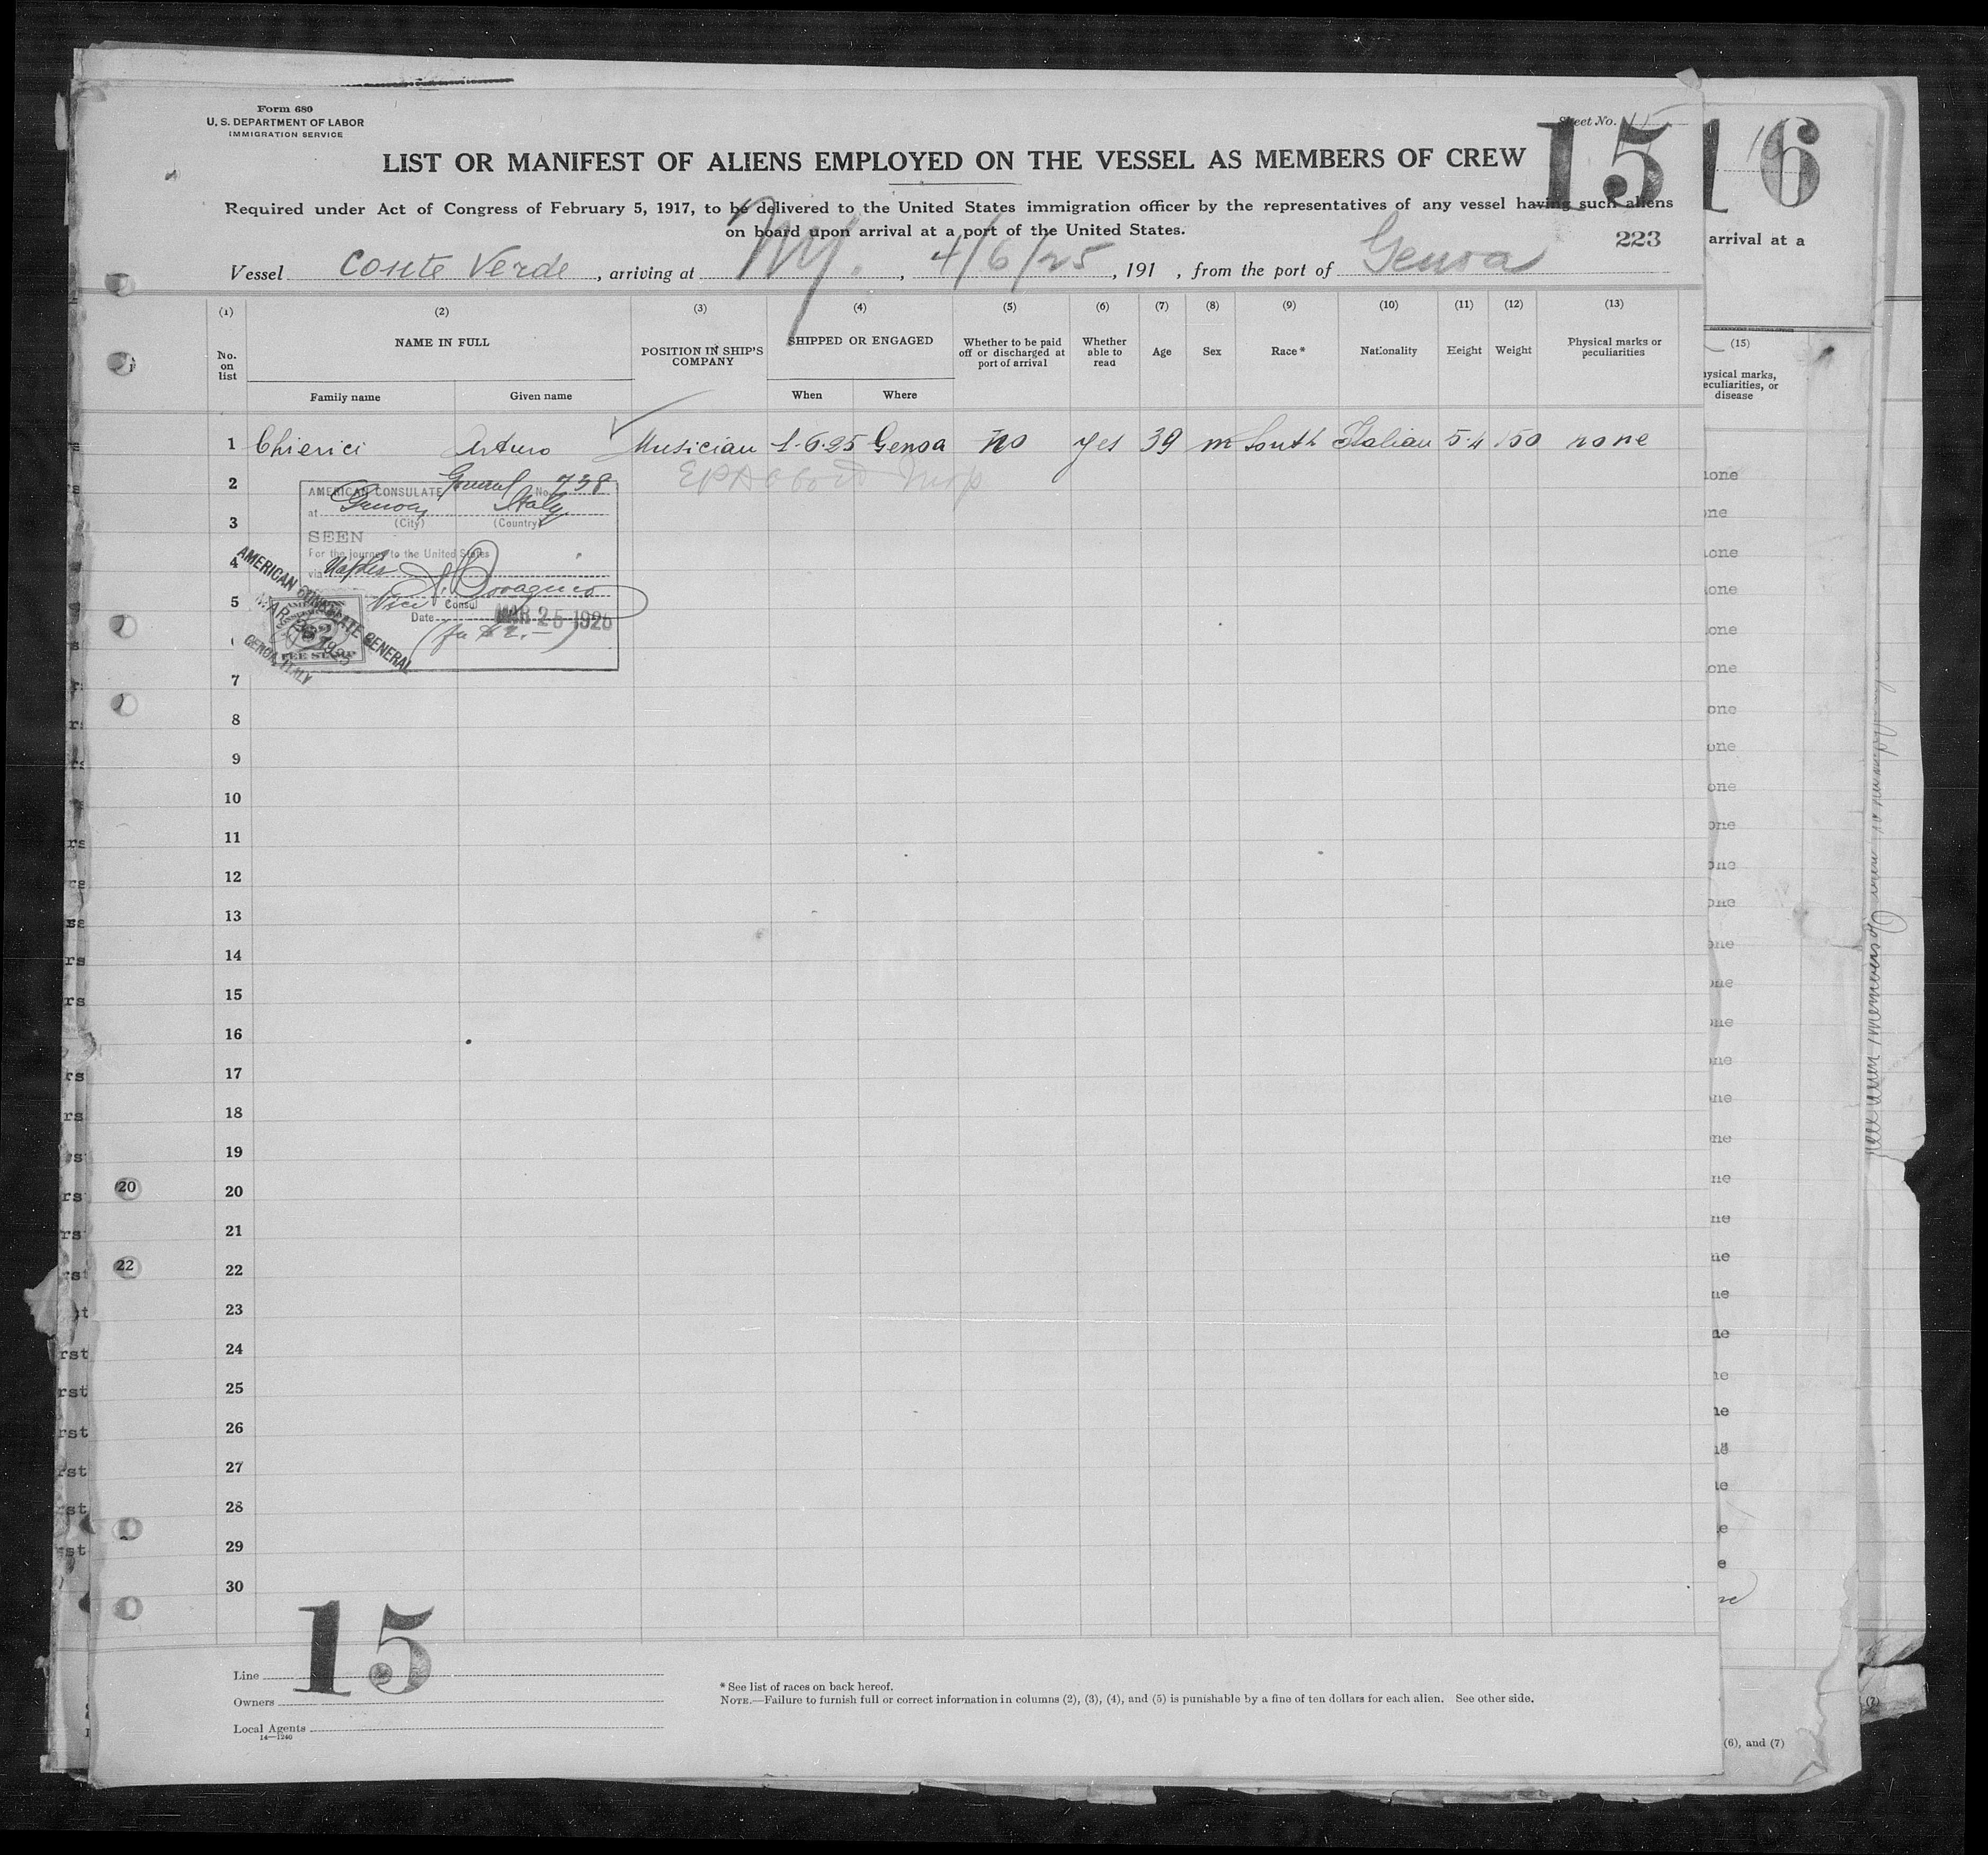 Form 689
U. S. DEPARTMENT OF LABOR
IMMIGRATION SERVICE
Sheet No. 15
15
16
LIST OR MANIFEST OF ALIENS EMPLOYED ON THE VESSEL AS MEMBERS OF CREW
Required under Act of Congress of February 5, 1917, to be delivered to the United States immigration officer by the representatives of any vessel having such aliens
on board upon arrival at a port of the United States.
223
arrival at a
Vessel Conte Verde, arriving at NY., 4/6/25, 191 , from the port of Genoa
(1) (2) (3) (4) (5) (6) (7) (8) (9) (10) (11) (12) (13)
No. on list
NAME IN FULL
Family name Given name
POSITION IN SHIP'S COMPANY
SHIPPED OR ENGAGED
When Where
Whether to be paid off or discharged at port of arrival
Whether able to read
Age
Sex
Race *
Nationality
Height
Weight
Physical marks or peculiarities
(15)
1 Chierici Arturo Musician 1-6-25 Genoa no yes 39 m South Italian 5.4 150 none
2
AMERICAN CONSULATE General No. 738
at Genoa, Italy
(City) (Country)
3
SEEN
For the journey to the United States
4
via Naples
5
Vice Consul
Date MAR 25 1925
AMERICAN CONSULATE GENERAL
GENOA, ITALY
FEE STAMP
7
8
9
10
11
12
13
14
15
16
17
18
19
20
21
22
23
24
25
26
27
28
29
30
20
22
15
Line
Owners
Local Agents
14—1240
* See list of races on back hereof.
NOTE.—Failure to furnish full or correct information in columns (2), (3), (4), and (5) is punishable by a fine of ten dollars for each alien. See other side.
(6), and (7)